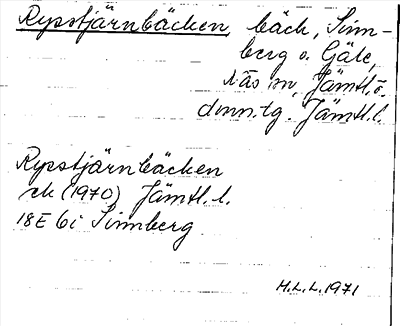 Rypstjärnbäcken, bäck, Sinn-
berg o. Gäle,
Näs sn, Jämtl. ö.
doms.tg. Jämtl. l.
Rypstjärnbäcken
ek (1970) Jämtl. l.
18E 6i Sinnberg
H.L.L. 1971